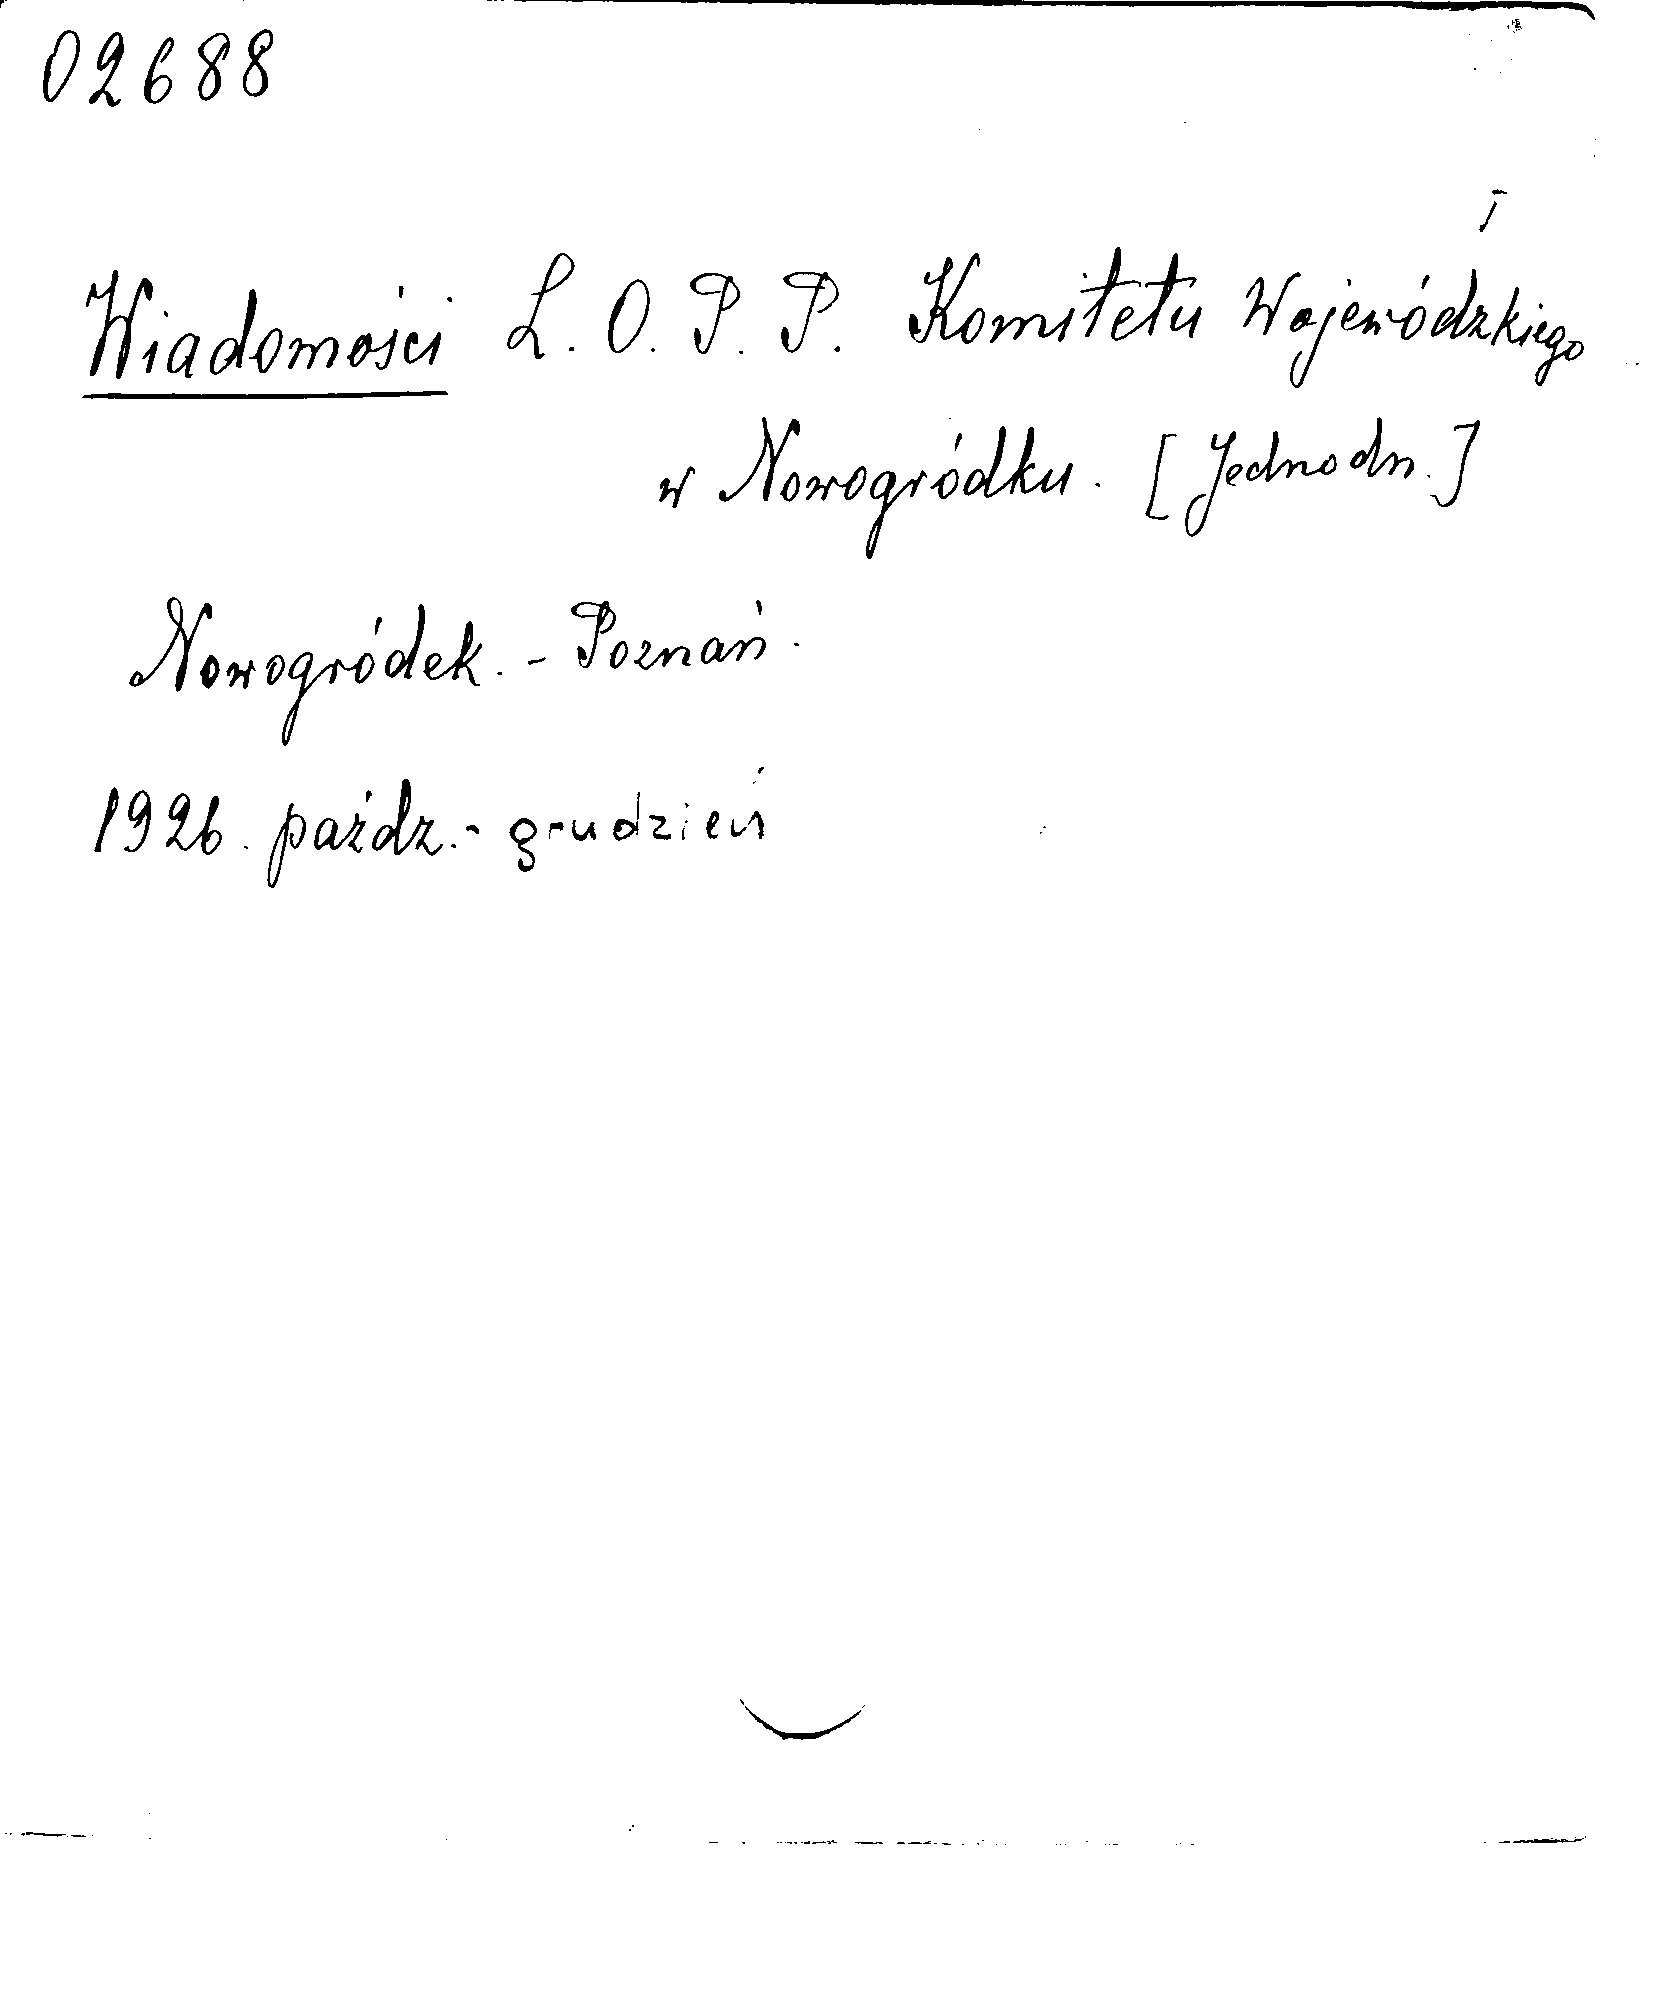 02688
I
Wiadomości L. O. P. P. Komitetu Wojewódzkiego
w Nowogródku. [Jednodn.]
Nowogródek. - Poznań.
1926. paźdz. - grudzień